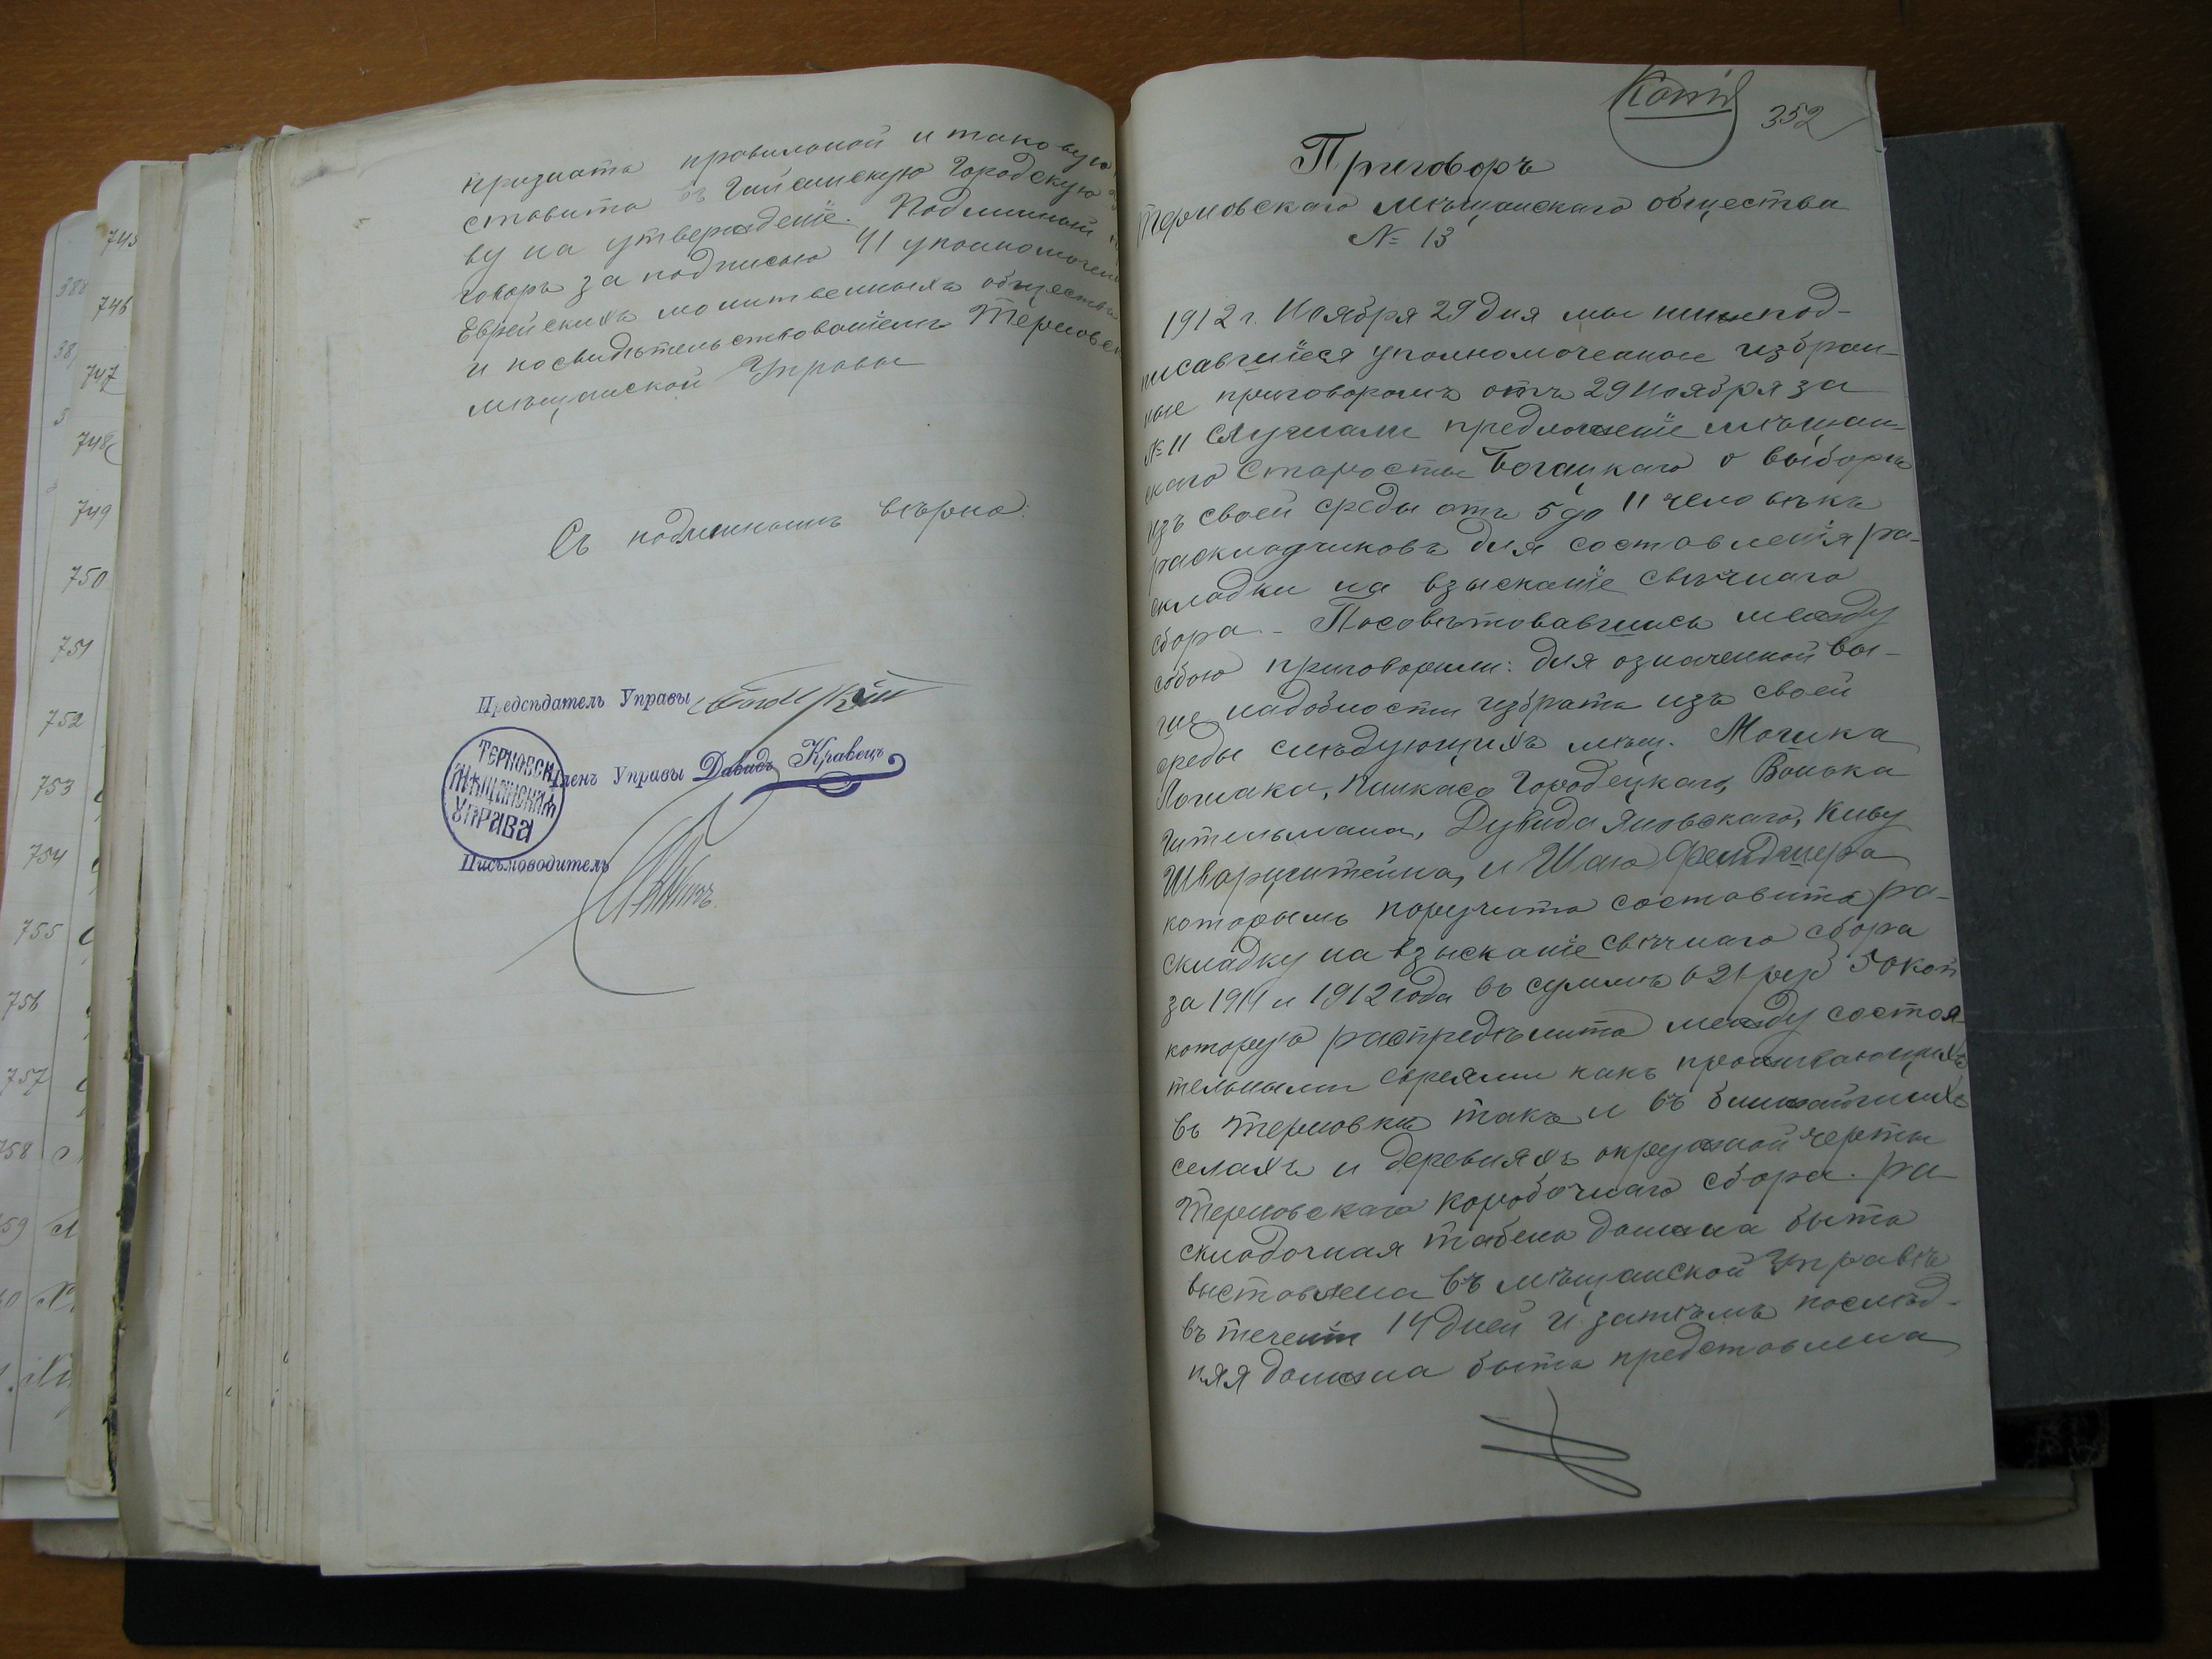 745
388
746
38
747
3
748
749
750
751
752
753
754
755
756
757
758
59
признать правильной и таковую
ставить въ Гайсинскую Городскую
ву на утвержденіе. Подлинный
говоръ за подписью 41 уполномочен
Еврейскихъ молитвенныхъ обществъ
и посвидѣтельствованіемъ Терновск
мѣщанской Управы
Съ подлиннымъ вѣрно:
Предсѣдатель Управы
Членъ Управы Давидъ Кравецъ
ТЕРНОВСК
МѢЩАНСКАЯ
УПРАВА
Письмоводитель
Копія
352
Приговоръ
Терновскаго мѣщанскаго общества
№ 13
1912 г. Ноября 29 дня мы нижепод-
писавшіеся уполномоченные избран-
ные приговоромъ отъ 29 Ноября за
№ 11 слушали предложеніе мѣщан-
скаго Старосты Богацкаго о выборѣ
изъ своей среды отъ 5 до 11 человѣкъ
раскладчиковъ для составленія ра-
складки на взысканіе свѣчнаго
сбора - Посовѣтовавшись между
собою приговорили: для означенной вы-
ше надобности избрать изъ своей
среды слѣдующихъ мѣщ. Мошка
Пинкаса Городецкаго, Волька
Гительмана, Дувида Яновскаго, Киву
Шварцштейна, и Шаю Фельдшера
которымъ поручить составить ра-
складку на взысканіе свѣчнаго сбора
за 1911 и 1912 года въ суммѣ 621 руб 50 коп
которую распредѣлить между состоя
тельными евреями какъ проживающихъ
въ Терновкѣ такъ и въ ближайшихъ
селахъ и деревняхъ окружной черты
Терновскаго коробочнаго сбора. ра-
складочная табель должна быть
выставлена въ мѣщанской Управѣ
въ теченіи 14 дней и затѣмъ послѣд-
няя должна быть представлена